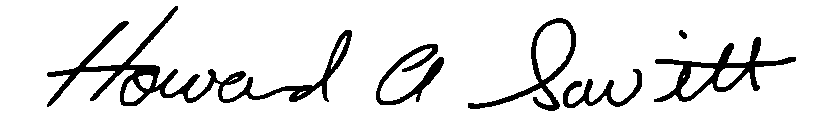 Howard A Savitt